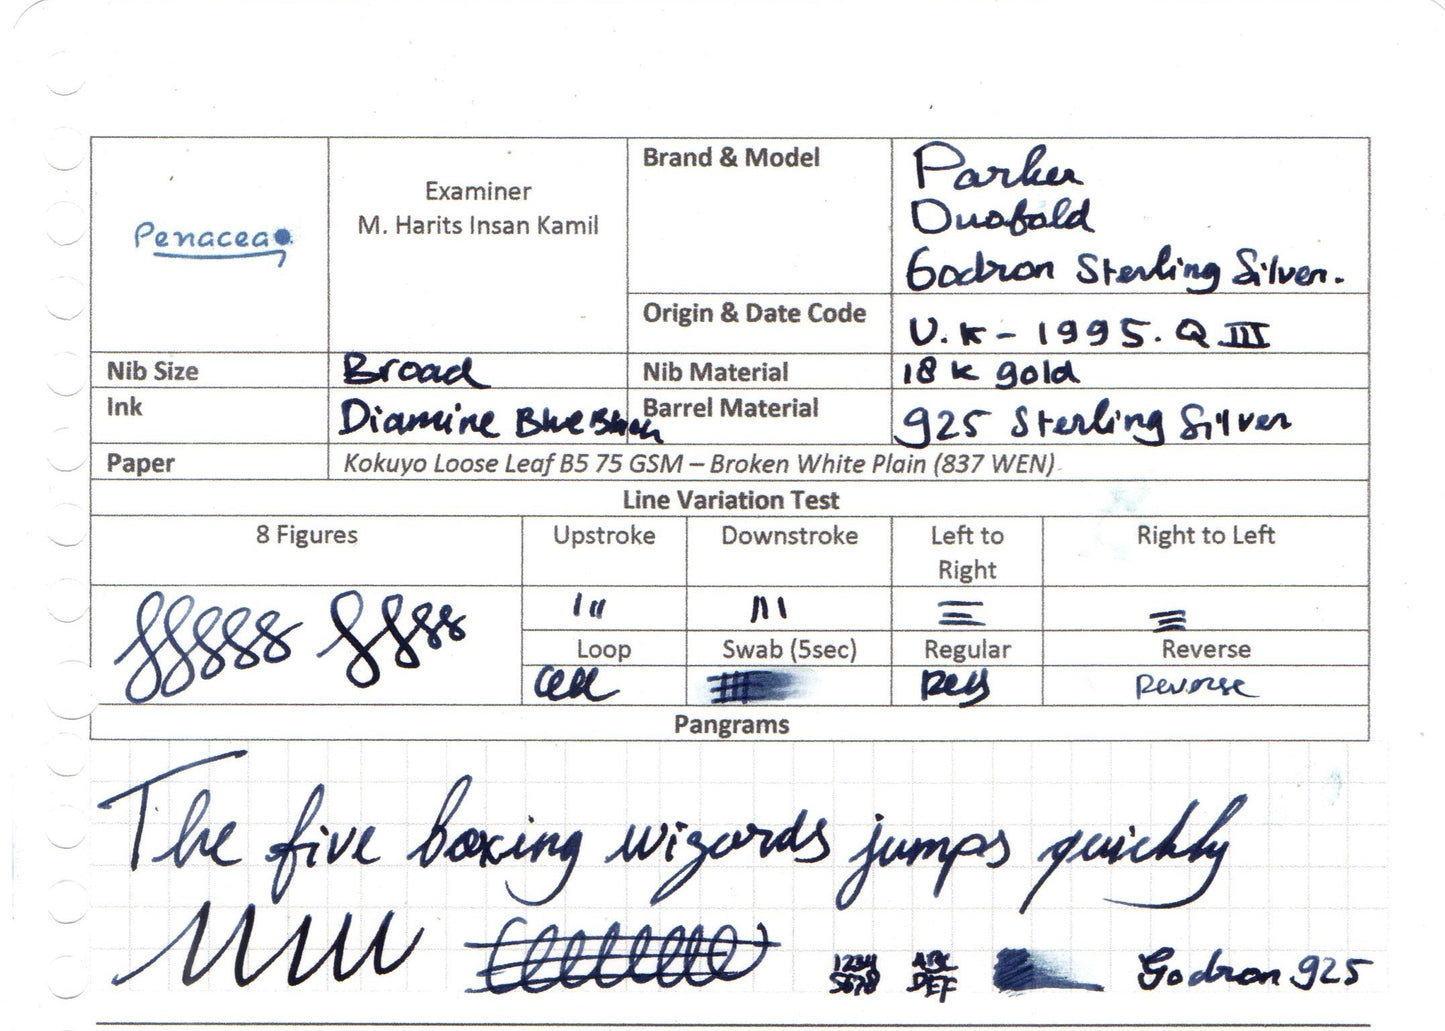 Penacea
Examiner
M. Harits Insan Kamil
Brand & Model
Parker
Duofold
Godron Sterling Silver.
Origin & Date Code
U.K - 1995. Q.III
Nib Size
Broad
Nib Material
18 k gold
Ink
Diamine Blue Black
Barrel Material
925 Sterling Silver
Paper
Kokuyo Loose Leaf B5 75 GSM – Broken White Plain (837 WEN)
Line Variation Test
8 Figures
Upstroke
Downstroke
Left to
Right
Right to Left
Loop
Swab (5sec)
Regular
Reverse
Reverse
Pangrams
The five boxing wizards jumps quickly
1234
5678
ABC
DEF
Godron 925